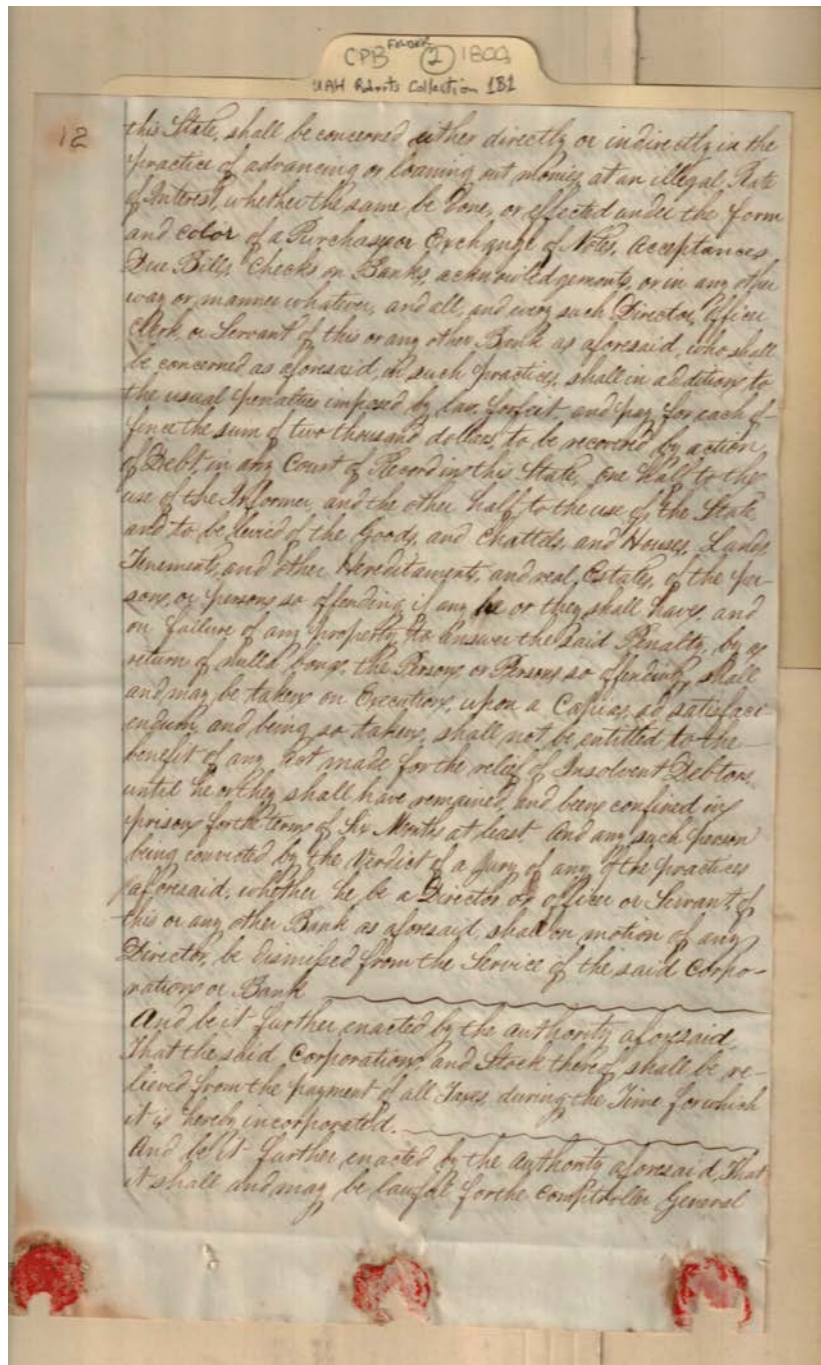 CPB FOLDER 2 1809
UAH Roberts Collection 1B1
12
this State, shall be concerned either directly or indirectly in the
practice of advancing or loaning out monies at an illegal Rate
of Interest, whether the same be Done, or effected under the form
and color of a Purchase or Exchange of Notes, Acceptances,
Due Bills, Checks on Banks, acknowledgements, or in any other
way or manner whatever, and all, and every such Director, Officer
Clerk or Servant of this or any other Bank as aforesaid, who shall
be concerned as aforesaid, in such practices, shall in addition to
the usual penalties imposed by law, forfeit and pay for each of-
fence the sum of two thousand dollars, to be recovered by action
of Debt, in any Court of Record in this State, one half to the
use of the Informer, and the other half to the use of the State,
and to be levied of the Goods, and Chattels, and Houses, Lands
Tenements, and other Hereditaments, and real Estates, of the per-
son, or persons so offending, if any he or they shall have, and
on failure of any property, to answer the said Penalty, by a
return of nulla bona, the Person or Persons so offending, shall
and may be taken on Execution, upon a Capias, ad satisfaci
endum, and being so taken, shall not be entitled to the
benefit of any Act made for the relief of Insolvent Debtors
until he or they shall have remained, and been confined in
prison for the term of Six Months at least. And any such person
being convicted by the Verdict of a Jury of any of the practices
aforesaid, whether he be a Director or officer or Servant, of
this or any other Bank as aforesaid, shall on motion of any
Director, be dismissed from the Service of the said Corpo-
ration or Bank
And be it further enacted by the authority aforesaid,
That the said Corporation, and Stock thereof, shall be re-
lieved from the payment of all Taxes, during the Time for which
it is hereby incorporated.
And be it further enacted by the authority aforesaid, That
it shall and may be lawful for the Comptroller General